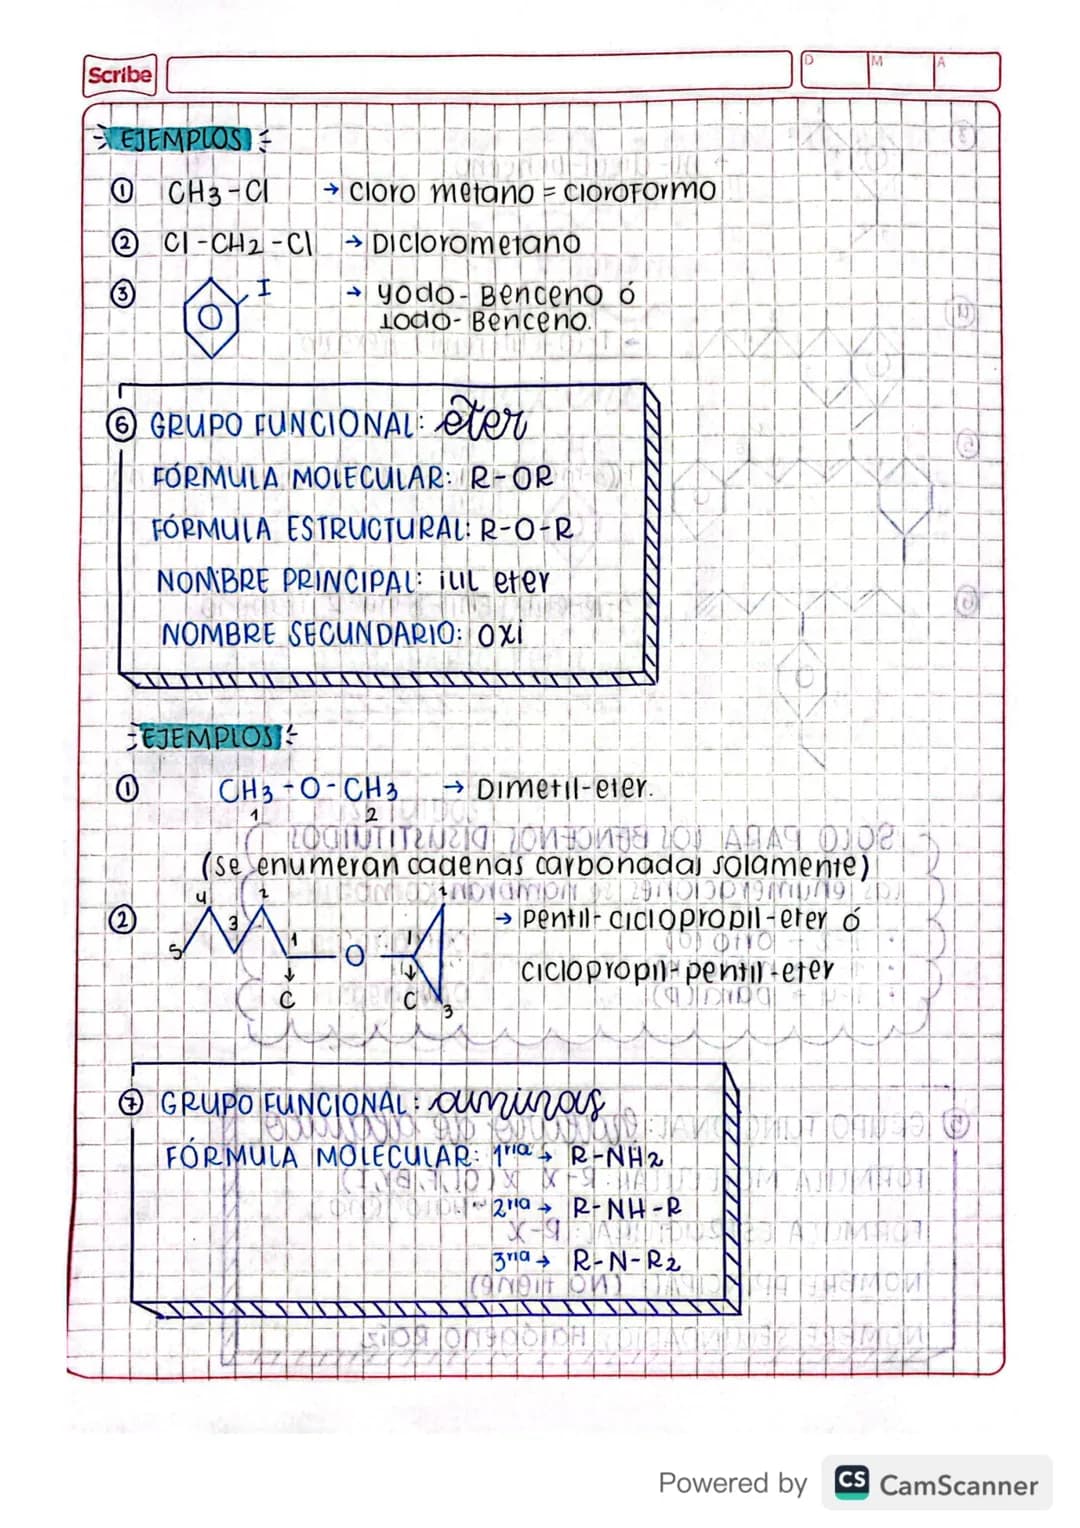 Scribe
D M A
EJEMPLOS
① CH3-Cl → Cloro metano = Cloroformo
② Cl-CH2-Cl → Diclorometano
③ I → yodo-Benceno ó
Iodo-Benceno.
⑥ GRUPO FUNCIONAL: éter
FÓRMULA MOLECULAR: R-OR
FÓRMULA ESTRUCTURAL: R-O-R
NOMBRE PRINCIPAL: iLIL eter
NOMBRE SECUNDARIO: oxi
EJEMPLOS
① CH3-O-CH3 → Dimetil-eter.
1 2
(se enumeran cadenas carbonadas solamente)
② 5 4 3 2 1 O 1 2 3 → Pentil-ciclopropil-eter ó
C C ciclopropil-pentil-eter
⑦ GRUPO FUNCIONAL: aminas
FÓRMULA MOLECULAR: 1ria → R-NH2
2ria → R-NH-R
3ria → R-N-R2
Powered by CS CamScanner